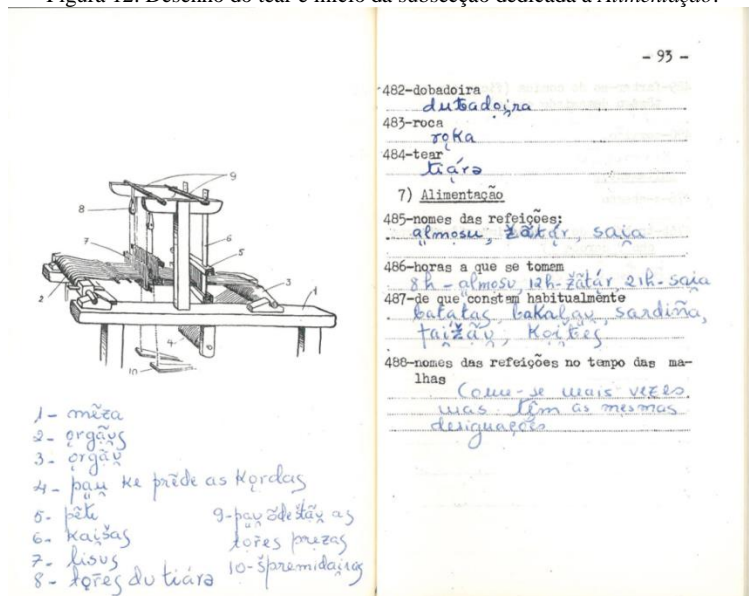 Figura 12: Desenho do tear e início da subsecção dedicada à Alimentação.
9
8
7
6
5
3
2
1
4
10
1- mẽza
2- ǫrgãu̯s
3- ǫrgãu̯
4- pau̯ ke prẽde as kǫrdas
5- pẽte
6- kai̯šas
7- lisus
8- tǫres du tiárə
9- pau̯ õde štãu̯ as
tǫres prezas
10- špremidai̯ras
- 93 -
482-dobadoira
dubadoi̯ra
483-roca
rǫka
484-tear
tiárə
7) Alimentação
485-nomes das refeições:
almosu, žãtár, sai̯a
486-horas a que se tomem
8h - almosu, 12h - žãtár, 21h - sai̯a
487-de que constam habitualmente
batatas, bakalau̯, sardiña,
fai̯žãu̯, koi̯tes
488-nomes das refeições no tempo das ma-
lhas
Come-se mais vezes
mas têm as mesmas
designações